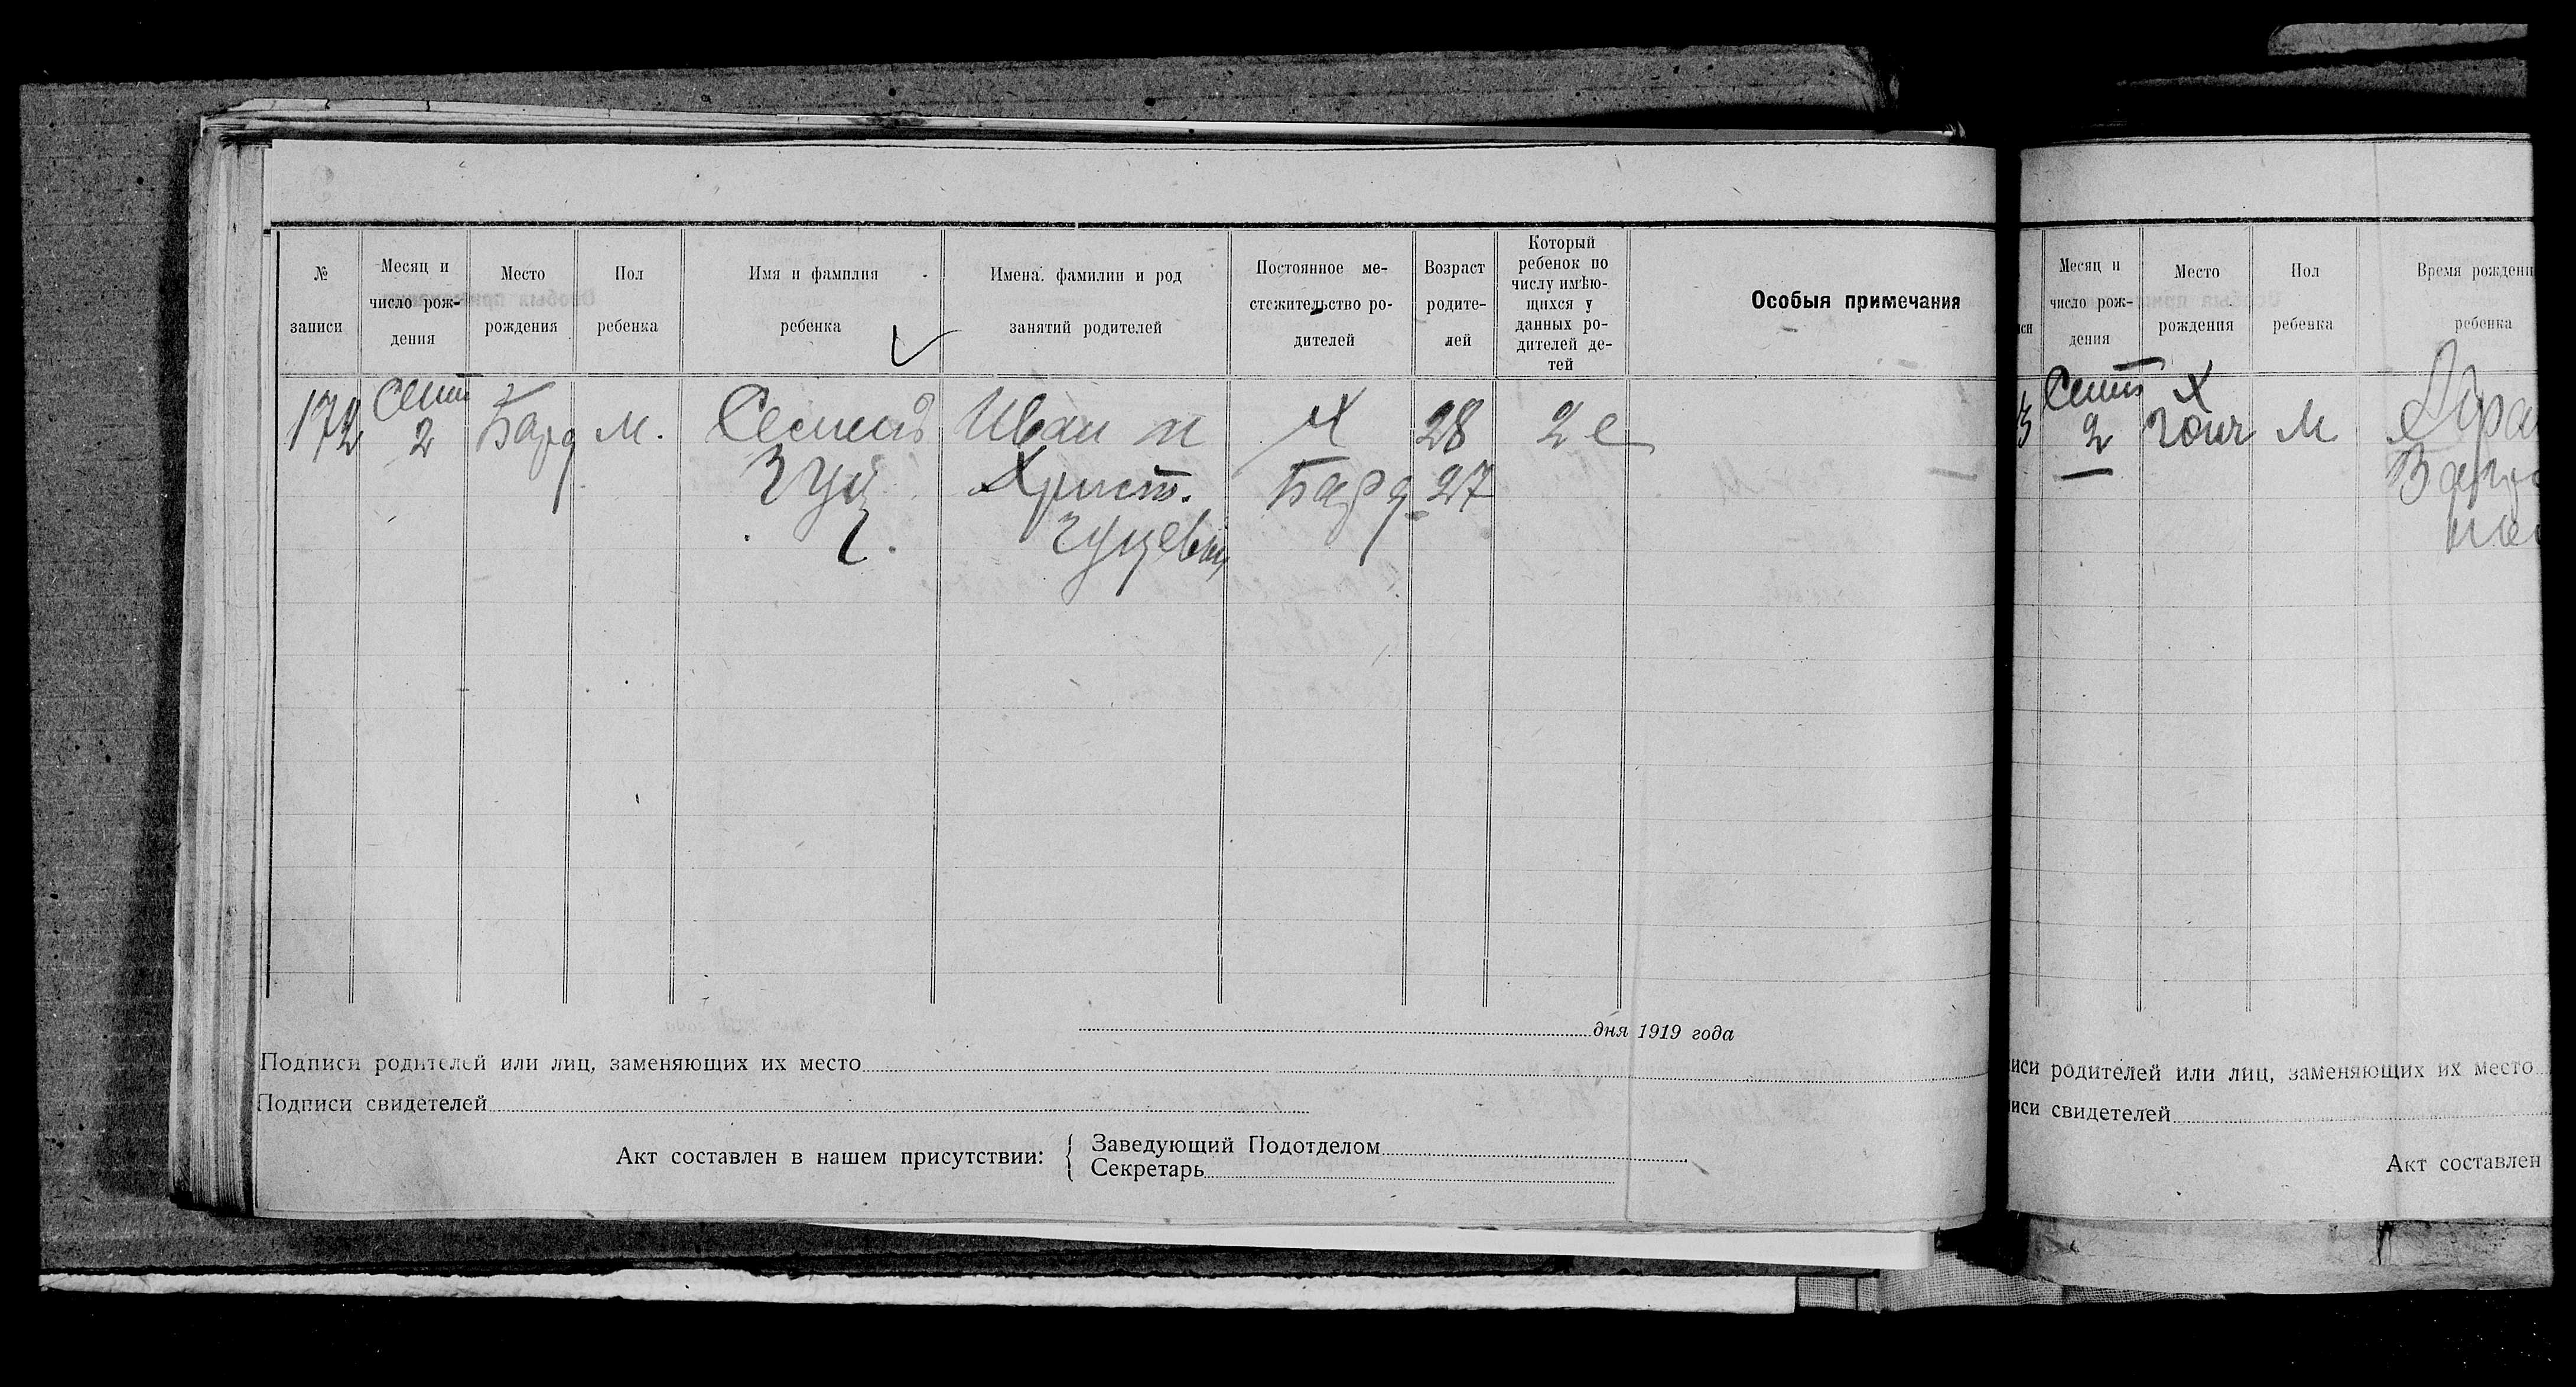 № записи
Месяц и число рож-дения
Место рождения
Пол ребенка
Имя и фамилия ребенка
Имена. фамилии и род занятий родителей
Постоянное ме-стожительство ро-дителей
Возраст родите-лей
Который ребенок по числу имѣю-щихся у данных ро-дителей де-тей
Особыя примечания
172
Сент 2
Бард
м.
Гуц
Иван и
Христ.
Гуцевы
Х
Бард
28
27
2 е
дня 1919 года
Подписи родителей или лиц, заменяющих их место
Подписи свидетелей
Акт составлен в нашем присутствии:
Заведующий Подотделом
Секретарь
иси
Месяц и число рож-дения
Место рождения
Пол ребенка
Время рождени
ребенка
3
Сент 2
Х
м
иси родителей или лиц, заменяющих их место
иси свидетелей
Акт составлен